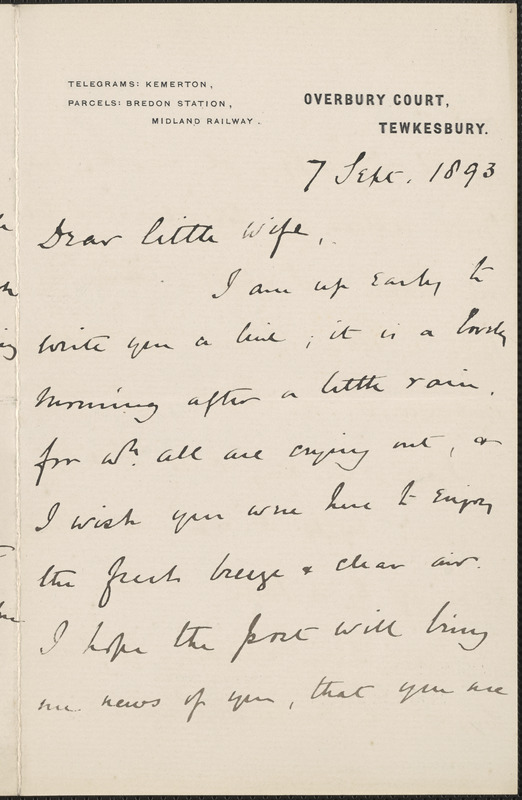 TELEGRAMS: KEMERTON,
PARCELS: BREDON STATION,
MIDLAND RAILWAY.
OVERBURY COURT,
TEWKESBURY.
7 Sept. 1893
Dear little wife,
I am up early to
write you a line; it is a lovely
morning after a little rain,
for wh. all are crying out, &
I wish you were here to enjoy
the fresh breeze & clear air.
I hope the post will bring
me news of you, that you are